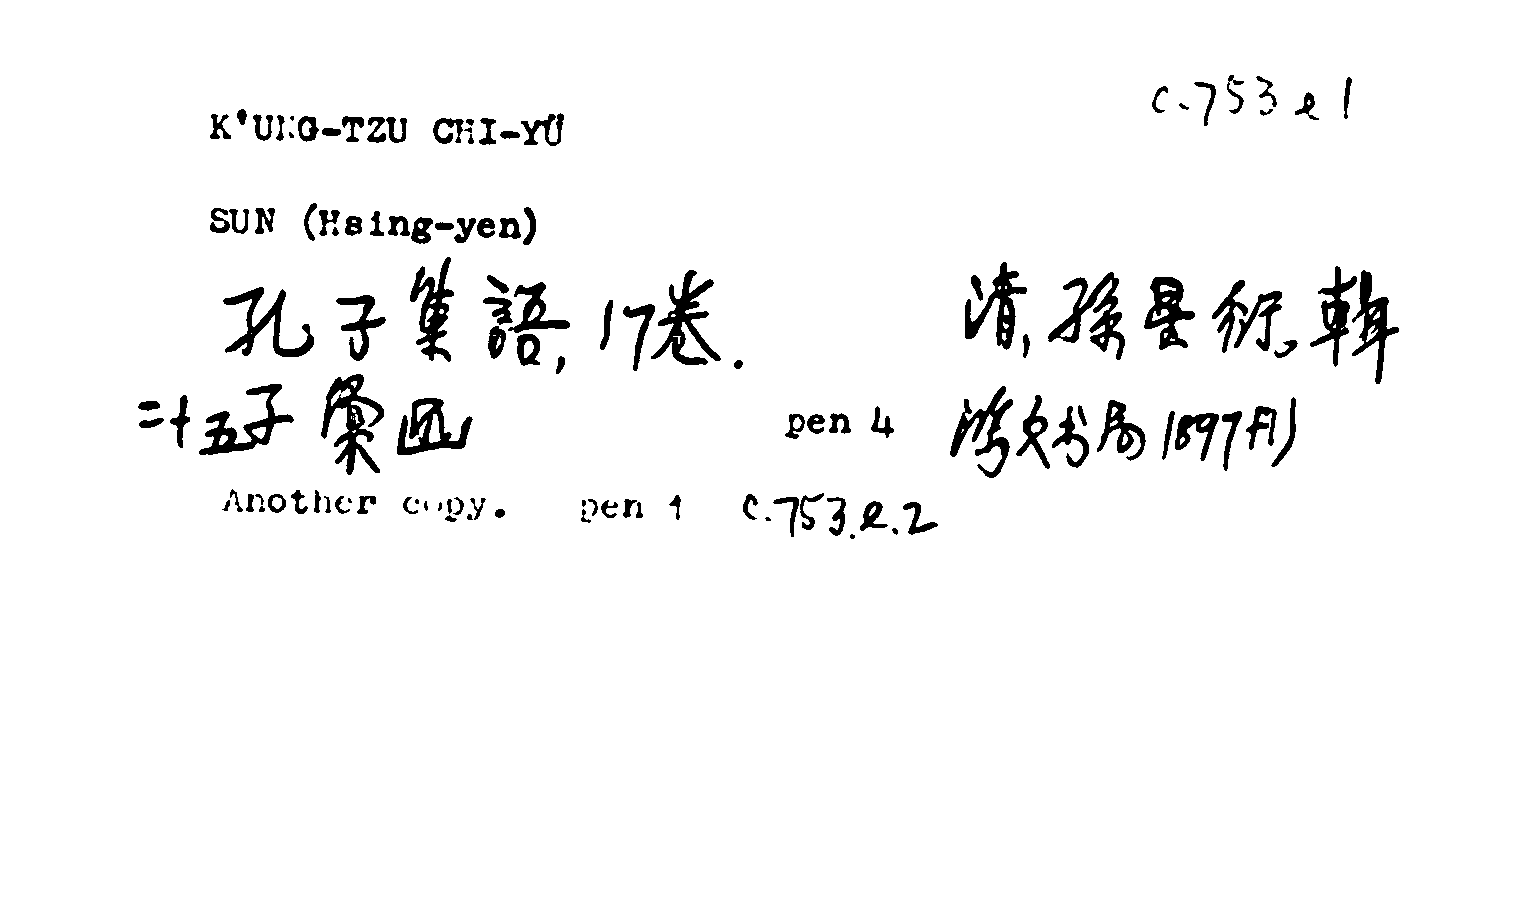 c.753 e 1
K'UNG-TZU CHI-YÜ
SUN (Hsing-yen)
孔子集語, 17卷. 清, 孫星衍, 輯
二十五子彙函 pen 4 鴻文书局 1897刊
Another copy. pen 1 c.753.e.2